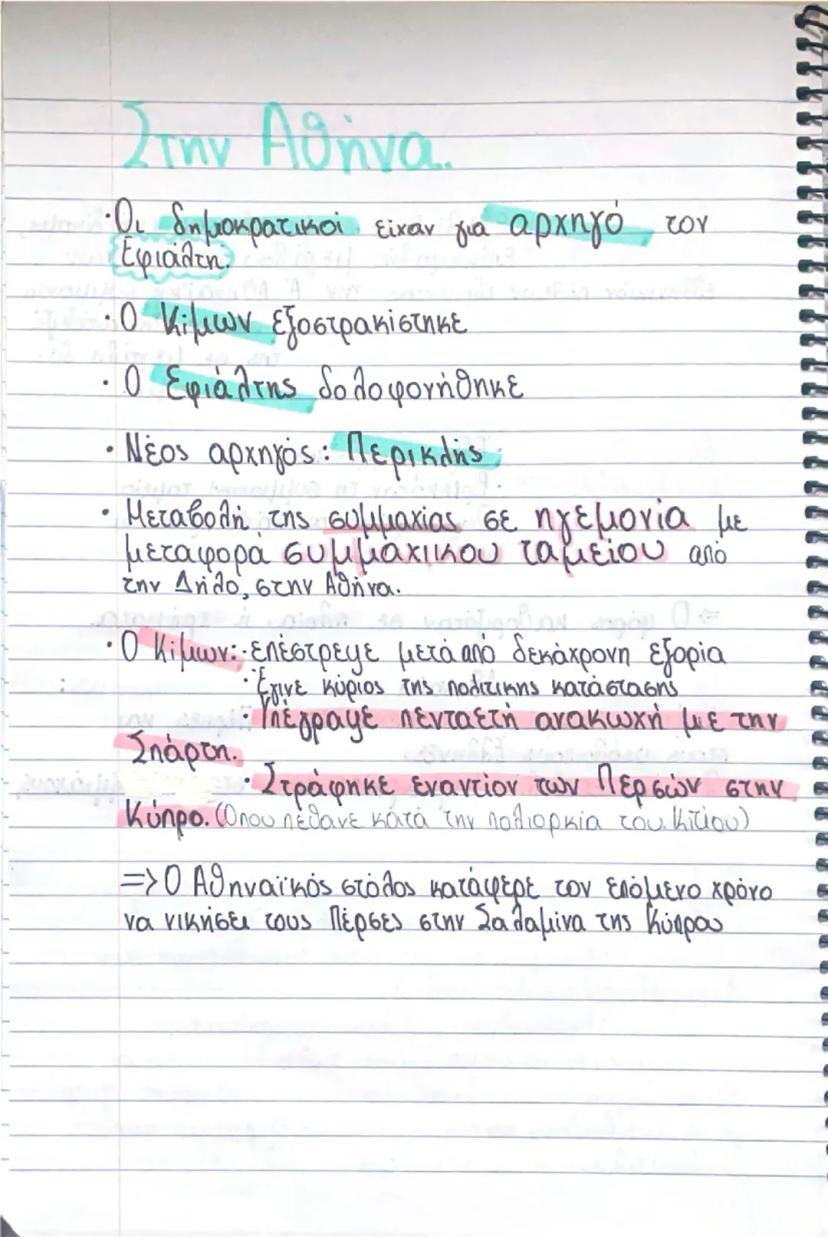 Στην Αθήνα.
· Οι δημοκρατικοί είχαν για αρχηγό τον
Εφιάλτη.
· Ο Κίμων εξοστρακίστηκε
· Ο Εφιάλτης δολοφονήθηκε
· Νέος αρχηγός: Περικλής
· Μεταβολή της συμμαχίας σε ηγεμονία με
μεταφορά συμμαχικου ταμείου από
την Δήλο, στην Αθήνα.
· Ο Κίμων: · επέστρεψε μετά από δεκάχρονη εξορία
· Έγινε κύριος της πολιτικής κατάστασης
· Υπέγραψε πενταετή ανακωχή με την
Σπάρτη.
· Στράφηκε εναντίον των Περσών στην
Κύπρο. (Όπου πέθανε κατά την πολιορκία του Κιτίου)
=> Ο Αθηναϊκός στόλος κατάφερε τον επόμενο χρόνο
να νικήσει τους Πέρσες στην Σαλαμίνα της Κύπρου